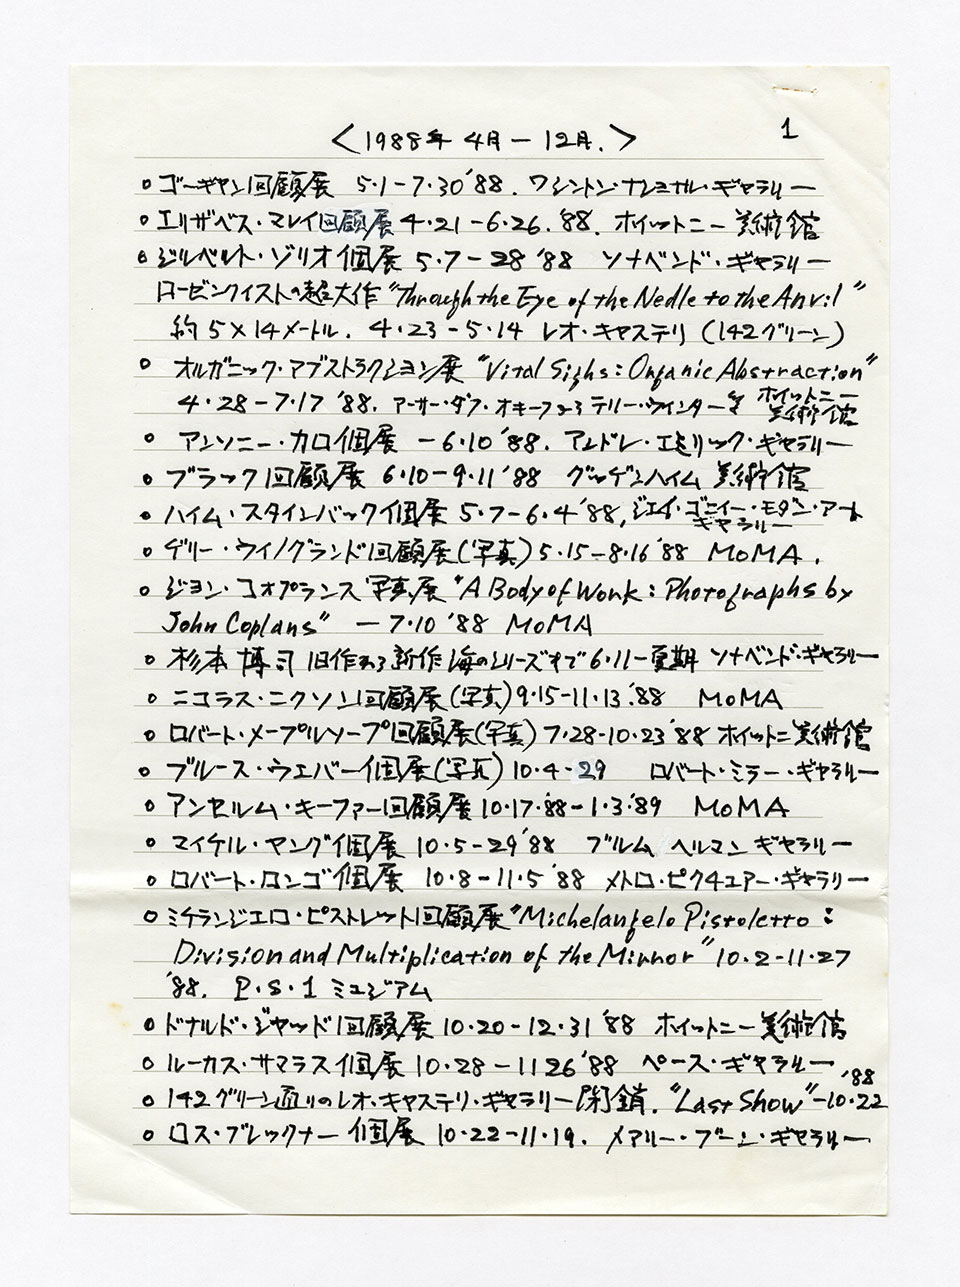 1
<1988年 4月－12月.>
○ ゴーギャン回顧展 5·1－7·30 '88. ワシントン・ナショナル・ギャラリー
○ エリザベス・マレイ回顧展 4·21－6·26. '88. ホイットニー 美術館
○ ジルベルト・ゾリオ個展 5·7－28 '88 ソナベンド・ギャラリー
ローゼンクイストの超大作 "Through the Eye of the Nedle to the Anvil"
約 5×14メートル. 4·23－5·14 レオ・キャステリ (142グリーン)
○ オルガニック・アブストラクション展 "Vital Sighs: Organic Abstraction"
4·28－7·17 '88. アーサー・ダブ・オキーフから テリー・ウィンターまで ホイットニー美術館
○ アンソニー・カロ個展 －6·10 '88. アンドレ・エメリック・ギャラリー
○ ブラック回顧展 6·10－9·11 '88 グッゲンハイム 美術館
○ ハイム・スタインバック個展 5·7－6·4 '88, ジェイ・ゴニィー・モダン・アートギャラリー
○ ゲリー・ウィノグランド回顧展(写真) 5·15－8·16 '88 MoMA.
○ ジョン・コオプランス 写真展 "A Body of Work: Photographs by
John Coplans" －7·10 '88 MoMA
○ 杉本 博司 旧作から新作 海のシリーズまで 6·11－夏期 ソナベンド・ギャラリー
○ ニコラス・ニクソン回顧展(写真) 9·15－11·13 '88 MoMA
○ ロバート・メープルソープ回顧展(写真) 7·28－10·23 '88 ホイットニ美術館
○ ブルース・ウエバー個展(写真) 10·4－29 ロバート・ミラー・ギャラリー
○ アンセルム・キーファー回顧展 10·17·'88－1·3 '89 MoMA
○ マイケル・ヤング個展 10·5－29 '88 ブルム ヘルマン ギャラリー
○ ロバート・ロンゴ個展 10·8－11·5 '88 メトロ・ピクチュアー・ギャラリー
○ ミケランジェロ・ピストレット回顧展 "Michelangelo Pistoletto:
Division and Multiplication of the Mirror" 10·2－11·27
'88. P·S·1 ミュジアム
○ ドナルド・ジャッド回顧展 10·20－12·31 '88 ホイットニー美術館
○ ルーカス・サマラス個展 10·28－11 26 '88 ペース・ギャラリー
○ 142グリーン通りのレオ・キャステリ・ギャラリー閉鎖. "Last Show" －10·22 '88
○ ロス・ブレックナー 個展 10·22－11·19. メアリー・ブーン・ギャラリー